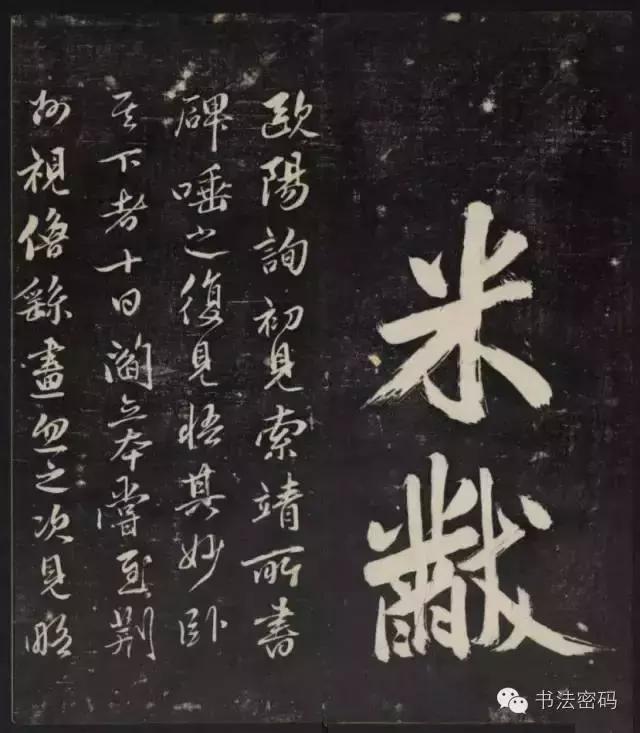 米黻
歐陽詢初見索靖所書
碑唾之復見悟其妙卧
其下者十日閻立本嘗至荆
州視僧繇畫忽之次見略
书法密码